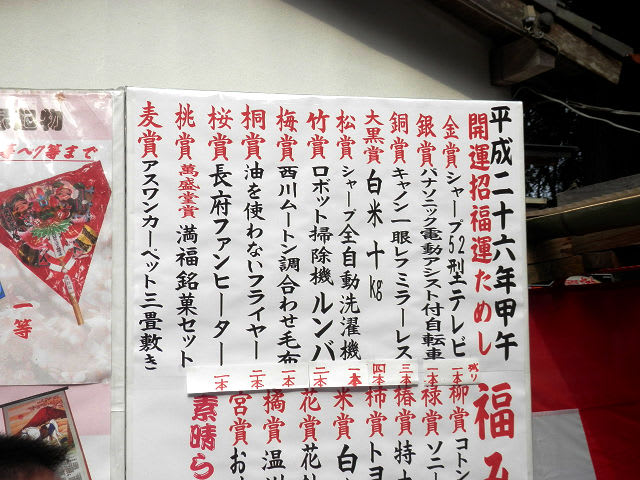 平成二十六年甲午
開運招福運ためし
金賞 シャープ52型エテレビ
銀賞 パナソニック電動アシスト付自転車
銅賞 キャノン一眼レフミラーレス
大黒賞 白米十kg
松賞 シャープ全自動洗濯機
竹賞 ロボット掃除機ルンバ
梅賞 西川ムートン調合わせ毛布
桐賞 油を使わないフライヤー
桜賞 長府ファンヒーター
桃賞 萬盛堂賞 満福銘菓セット
麦賞 アスワンカーペット三畳敷き
残り
一本
一本
三本
四本
一本
二本
一本
二本
一本
福み
柳賞 コトン
禄賞 ソニー
椿賞 特
柿賞 トヨ
米賞 白
花賞 花
橘賞 温
宮賞 お
素晴ら
一等